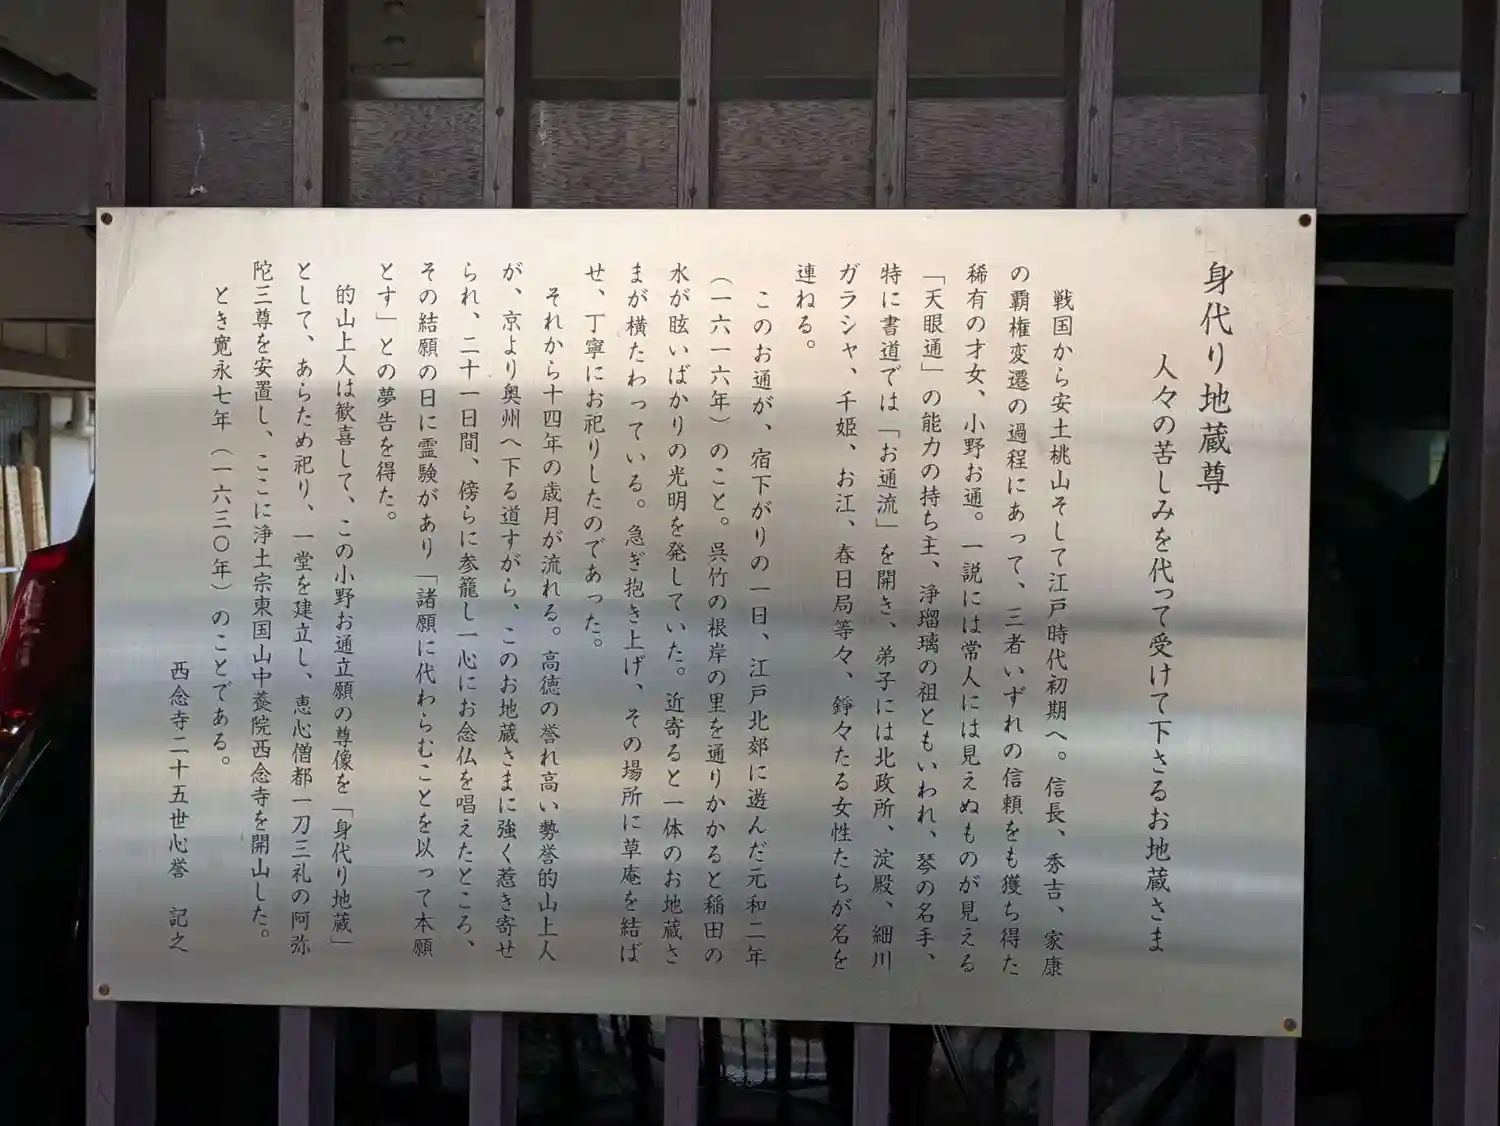 身代り地蔵尊
人々の苦しみを代って受けて下さるお地蔵さま
戦国から安土桃山そして江戸時代初期へ。信長、秀吉、家康
の覇権変遷の過程にあって、三者いずれの信頼をも獲ち得た
稀有の才女、小野お通。一説には常人には見えぬものが見える
「天眼通」の能力の持ち主、浄瑠璃の祖ともいわれ、琴の名手、
特に書道では「お通流」を開き、弟子には北政所、淀殿、細川
ガラシャ、千姫、お江、春日局等々、錚々たる女性たちが名を
連ねる。
このお通が、宿下がりの一日、江戸北郊に遊んだ元和二年
（一六一六年）のこと。呉竹の根岸の里を通りかかると稲田の
水が眩いばかりの光明を発していた。近寄ると一体のお地蔵さ
まが横たわっている。急ぎ抱き上げ、その場所に草庵を結ば
せ、丁寧にお祀りしたのであった。
それから十四年の歳月が流れる。高徳の誉れ高い勢誉的山上人
が、京より奥州へ下る道すがら、このお地蔵さまに強く惹き寄せ
られ、二十一日間、傍らに参籠し一心にお念仏を唱えたところ、
その結願の日に霊験があり「諸願に代わらむことを以って本願
とす」との夢告を得た。
的山上人は歓喜して、この小野お通立願の尊像を「身代り地蔵」
として、あらため祀り、一堂を建立し、恵心僧都一刀三礼の阿弥
陀三尊を安置し、ここに浄土宗東国山中養院西念寺を開山した。
とき寛永七年（一六三〇年）のことである。
西念寺二十五世心誉　記之